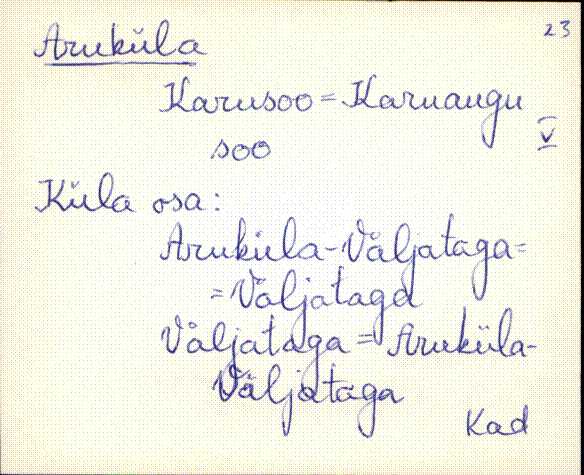 23
Aruküla
Karusoo = Karuaugu
soo
V
Küla osa:
Aruküla-Väljataga =
= Väljataga
Väljataga = Aruküla-
Väljataga
Kad